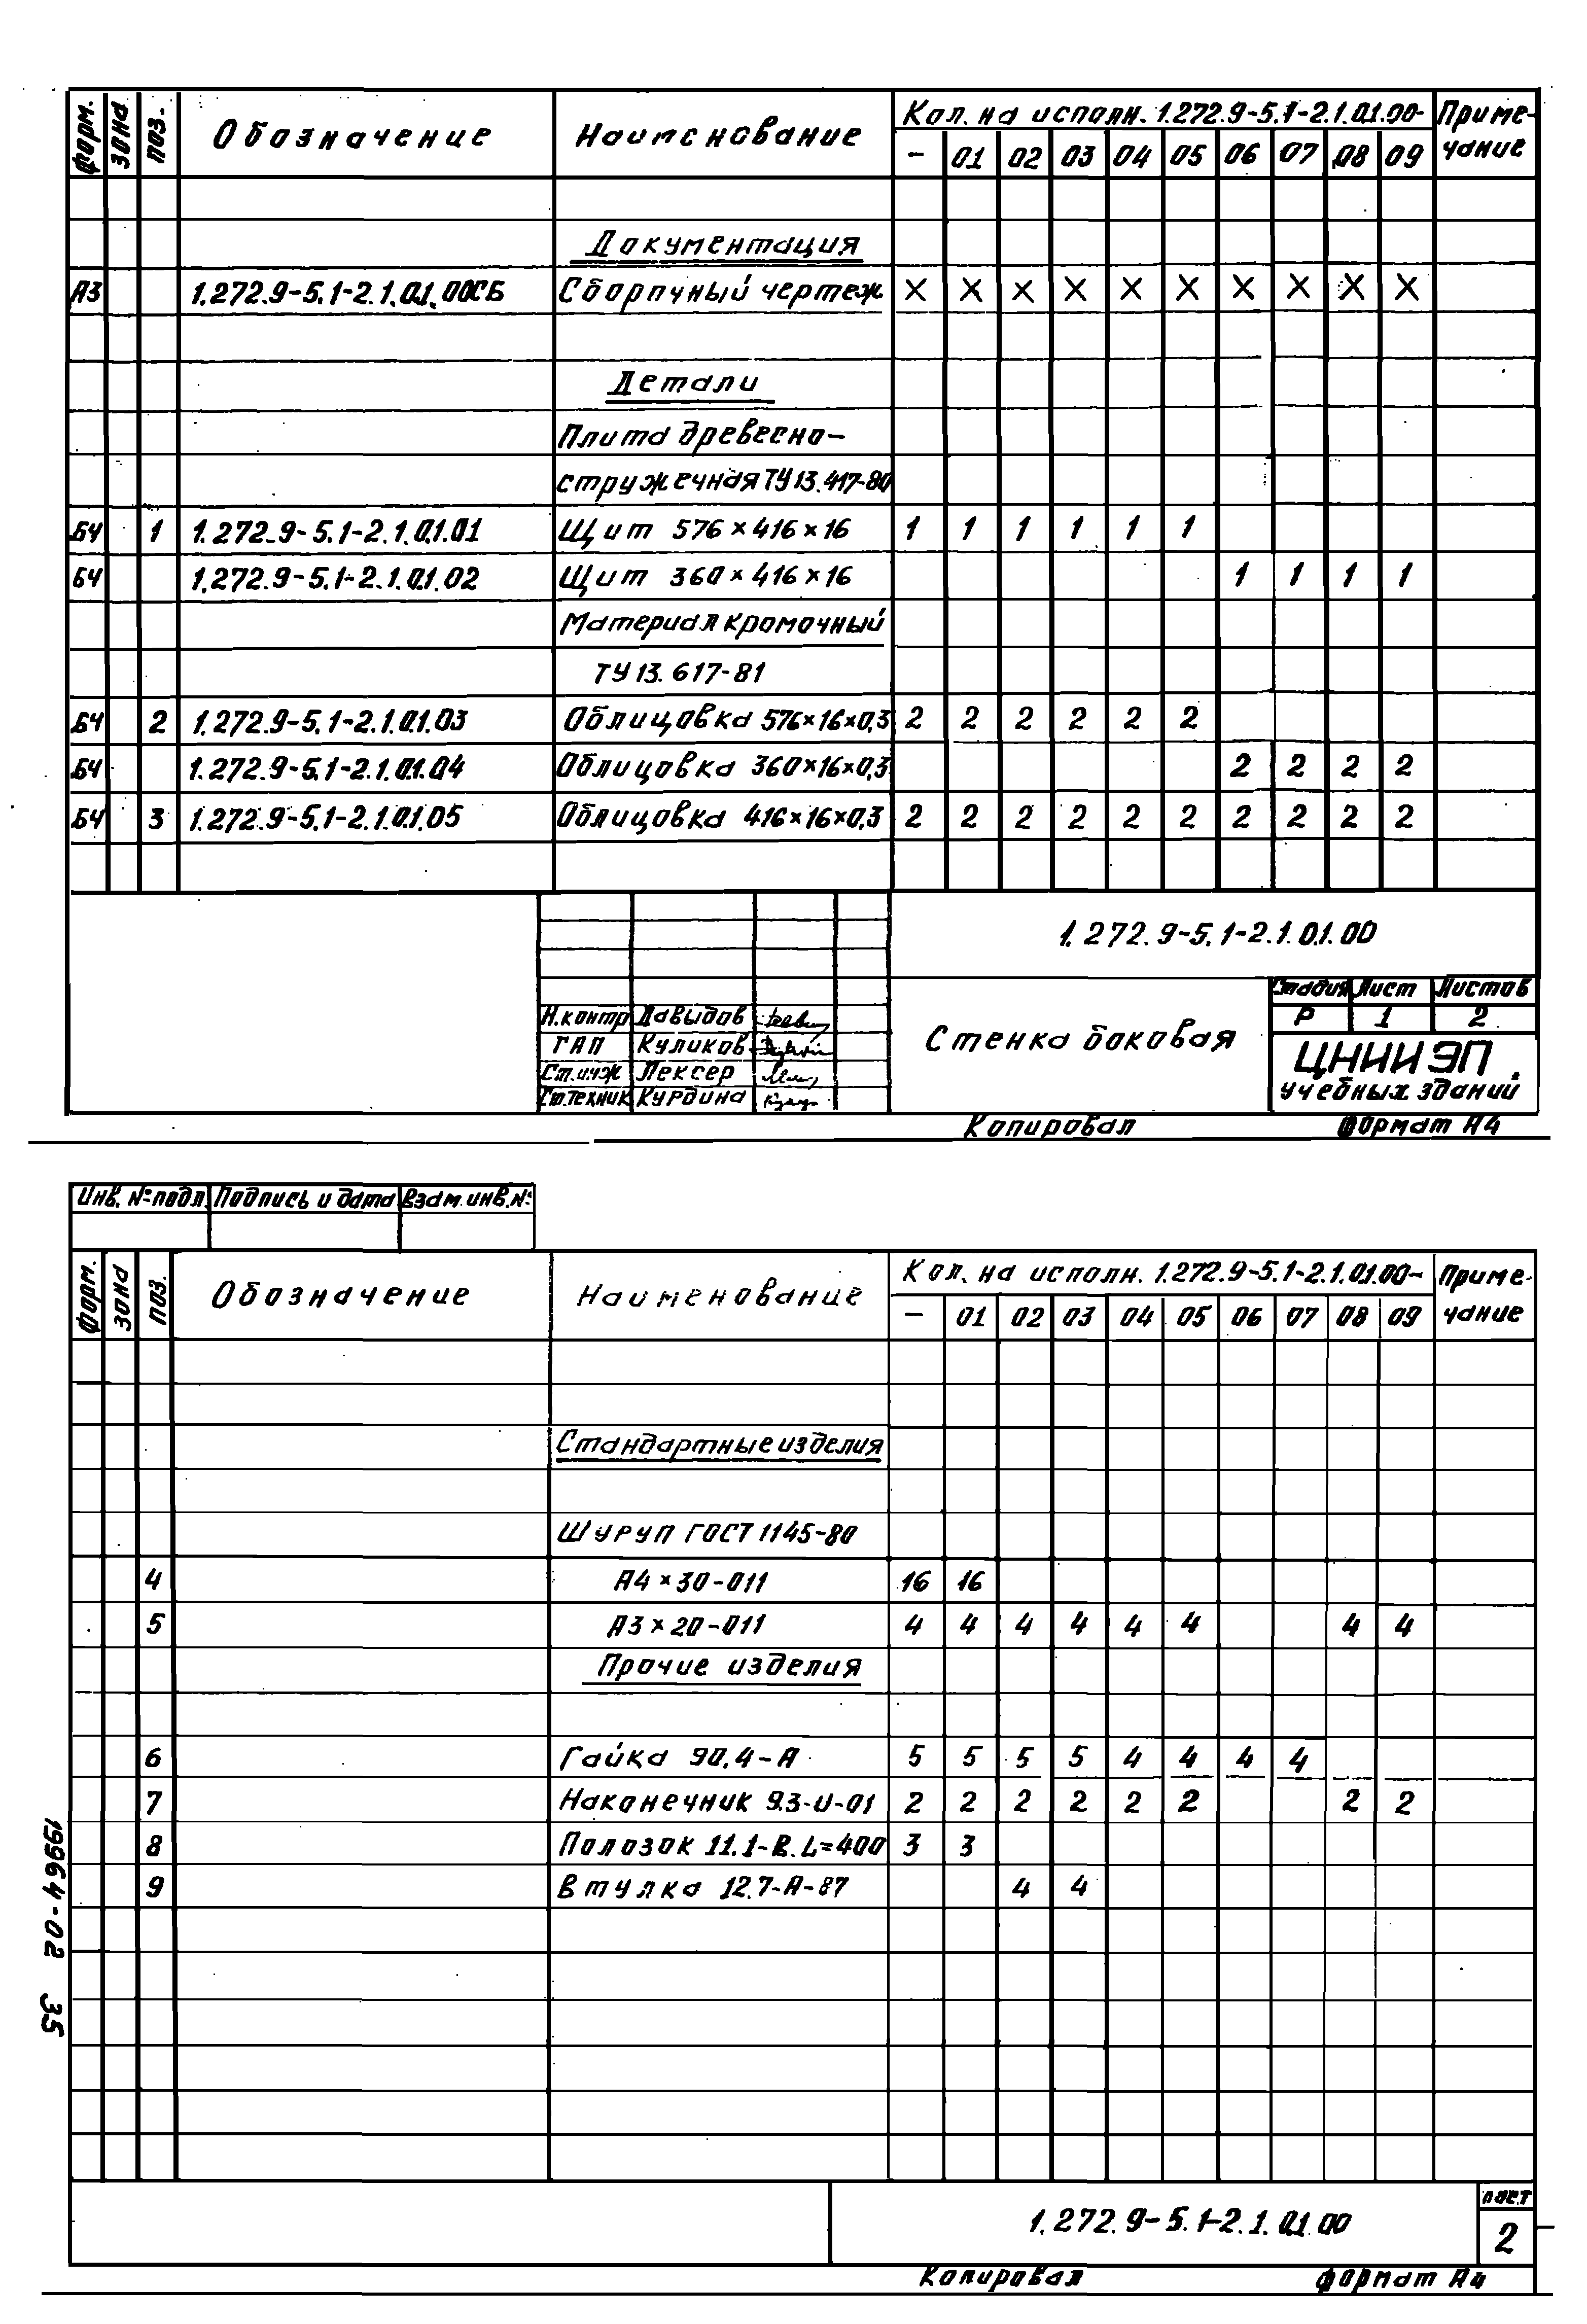 Форм. Зона Поз. Обозначение Наименование Кол. на исполн. 1.272.9-5.1-2.1.01.00- Приме-
чание
- 01 02 03 04 05 06 07 08 09
Документация
А3 1.272.9-5.1-2.1.01.00СБ Сборочный чертеж X X X X X X X X X X
Детали
Плита древесно-
стружечная ТУ13.417-80
БЧ 1 1.272.9-5.1-2.1.01.01 Щит 576×416×16 1 1 1 1 1 1
БЧ 1.272.9-5.1-2.1.01.02 Щит 360×416×16 1 1 1 1
Материал кромочный
ТУ13.617-81
БЧ 2 1.272.9-5.1-2.1.01.03 Облицовка 576×16×0,3 2 2 2 2 2 2
БЧ 1.272.9-5.1-2.1.01.04 Облицовка 360×16×0,3 2 2 2 2
БЧ 3 1.272.9-5.1-2.1.01.05 Облицовка 416×16×0,3 2 2 2 2 2 2 2 2 2 2
1.272.9-5.1-2.1.01.00
Стадия Лист Листов
Р 1 2
Н.контр Давыдов
ГАП Куликов
Ст.инж Лексер
Ст.техник Курдина
Стенка боковая
ЦНИИЭП
учебных зданий
Копировал Формат А4
Инв. № подл. Подпись и дата Взам.инв.№
Форм. Зона Поз. Обозначение Наименование Кол. на исполн. 1.272.9-5.1-2.1.01.00- Приме-
чание
- 01 02 03 04 05 06 07 08 09
Стандартные изделия
Шуруп ГОСТ 1145-80
4 А4×30-011 16 16
5 А3×20-011 4 4 4 4 4 4 4 4
Прочие изделия
6 Гайка 90.4-А 5 5 5 5 4 4 4 4
7 Наконечник 93-И-01 2 2 2 2 2 2 2 2
8 Полозок 11.1-В.L=400 3 3
9 Втулка 12.7-А-87 4 4
19964-02 35
1.272.9-5.1-2.1.01.00
Лист
2
Копировал Формат А4